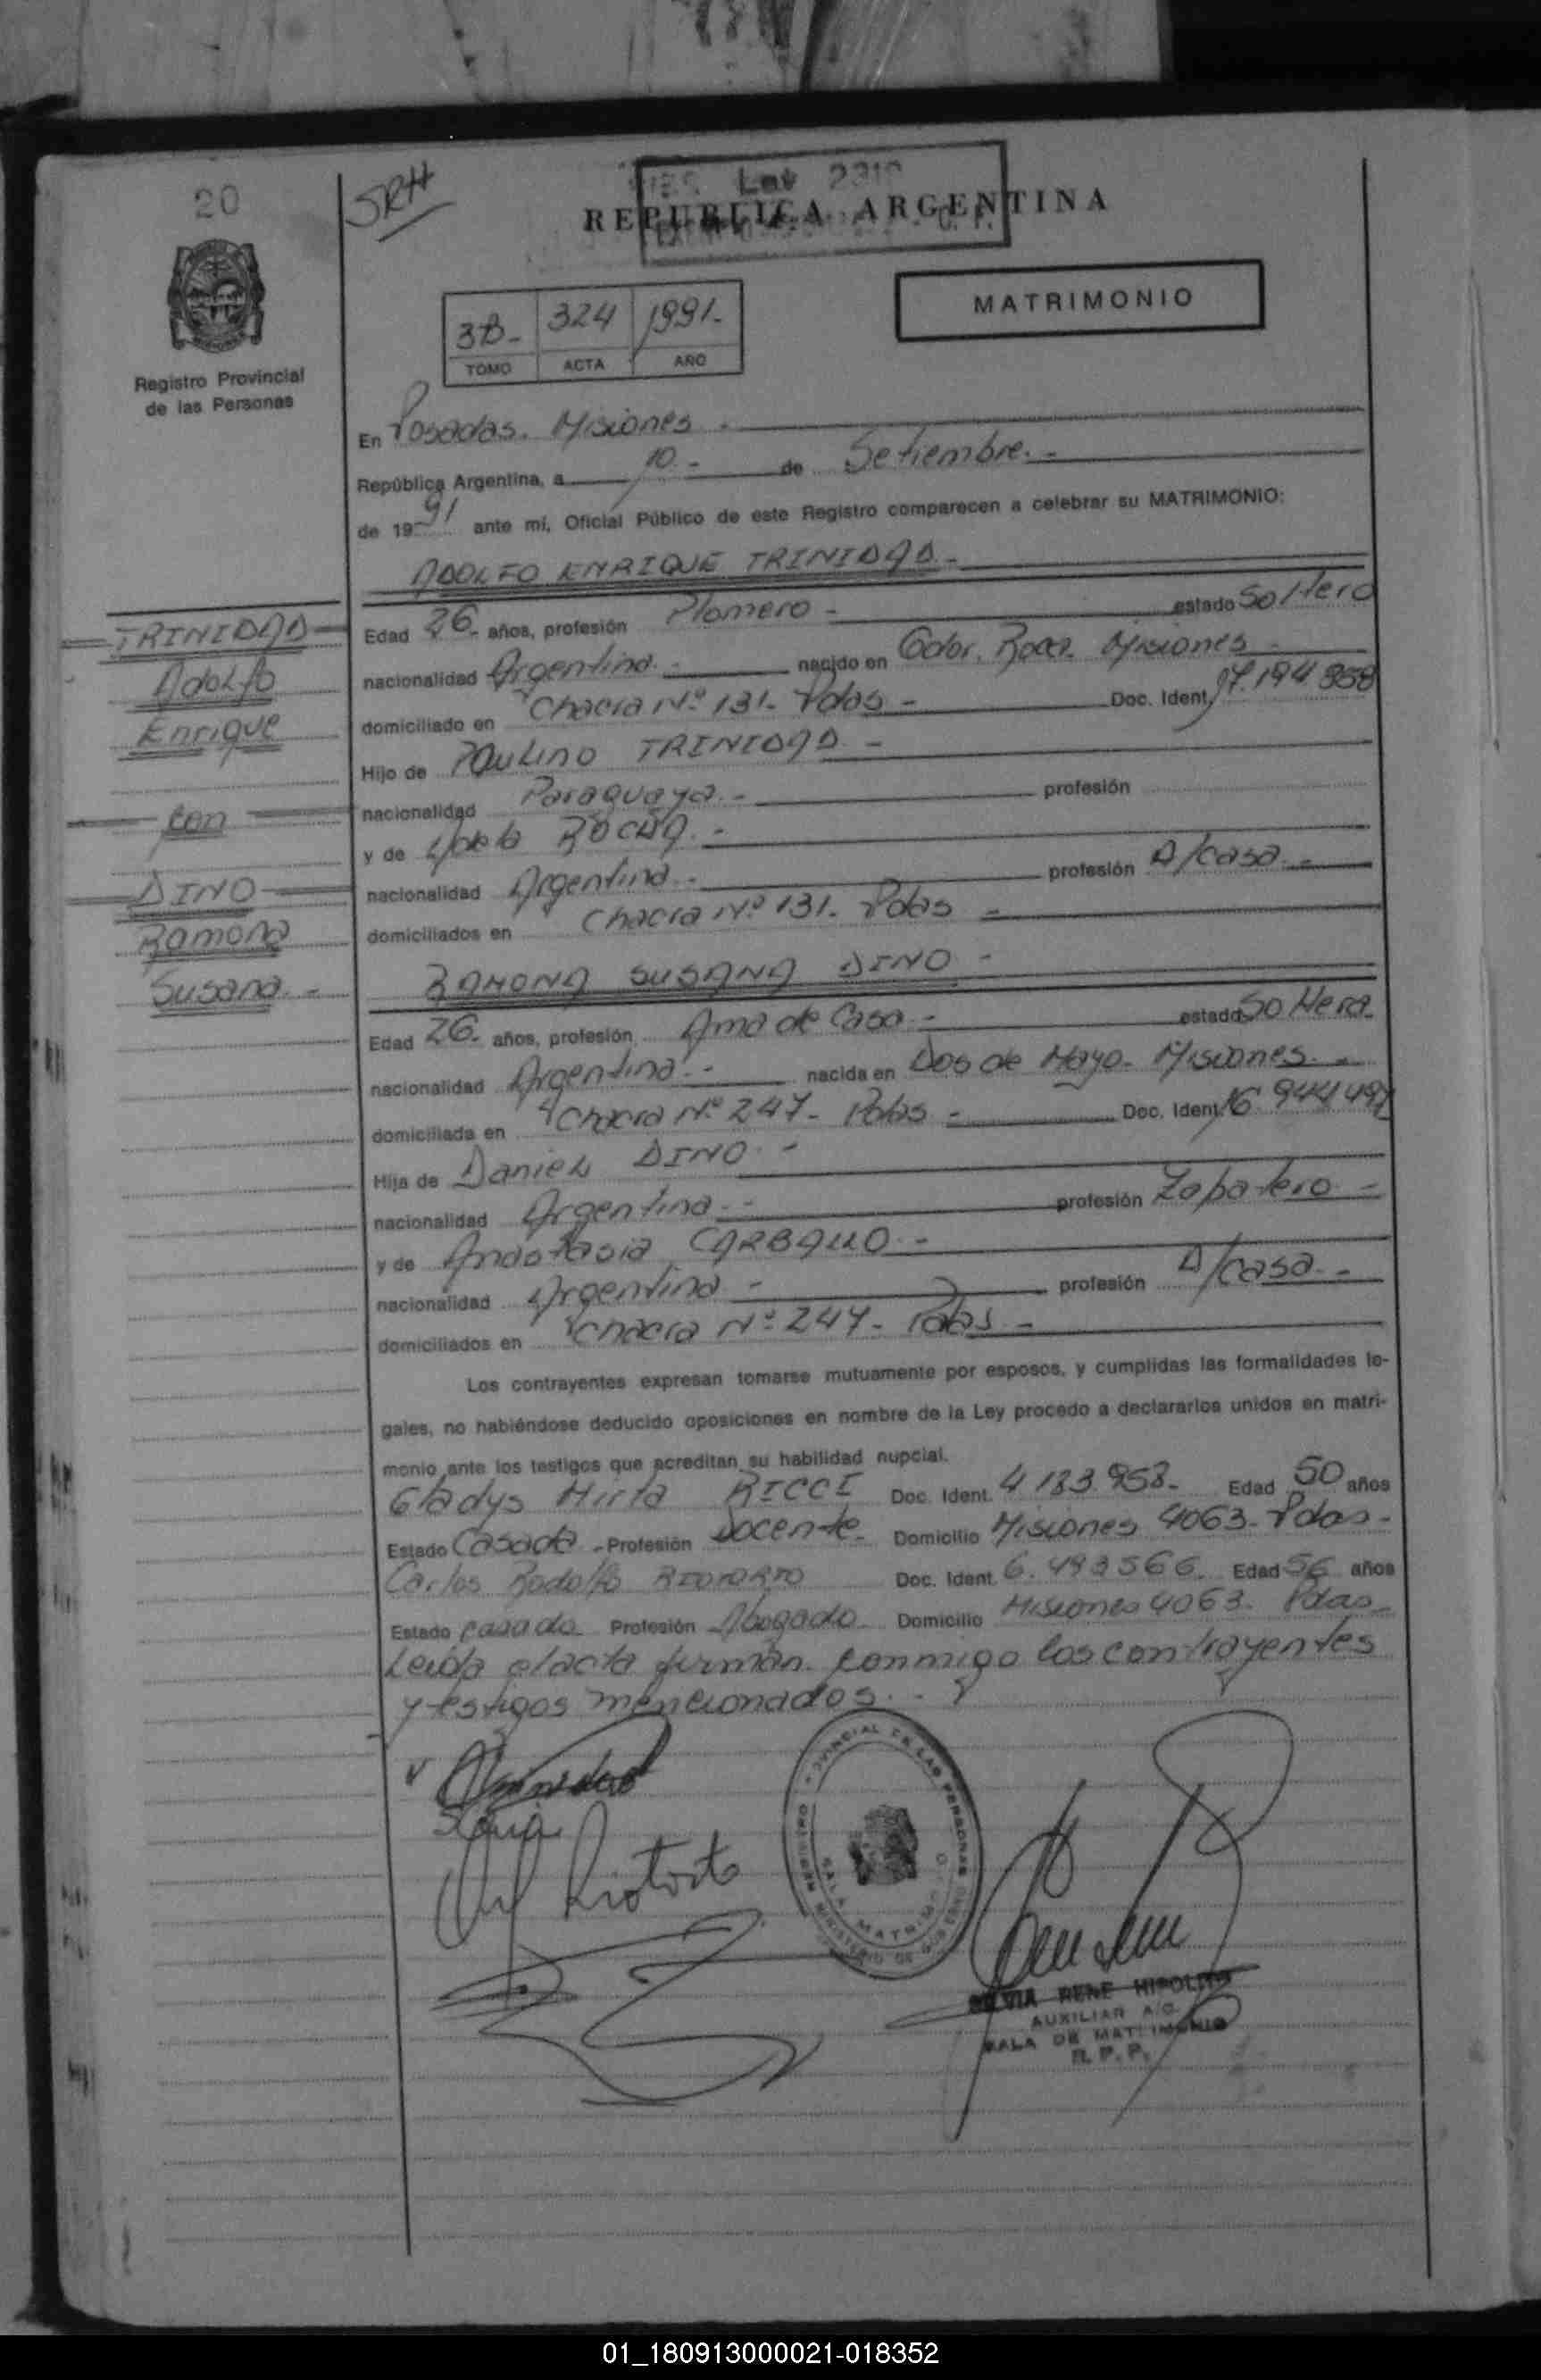 20
SRH
Ley 2310
REPUBLICA ARGENTINA
MATRIMONIO
3B- 324 1991-
TOMO ACTA AÑO
Registro Provincial
de las Personas
En Posadas. Misiones.-
República Argentina, a 10.- de Setiembre.-
de 1991 ante mí, Oficial Público de este Registro comparecen a celebrar su MATRIMONIO:
ADOLFO ENRIQUE TRINIDAD.-
Edad 26- años, profesión Plomero - estado Soltero
nacionalidad Argentina.- nacido en Gdor. Roca. Misiones -
domiciliado en Chacra Nº 131- Pdas - Doc. Ident. 17.194.858
Hijo de PAULINO TRINIDAD -
nacionalidad Paraguaya.- profesión
y de ROCHA.-
nacionalidad Argentina.- profesión A/casa.-
domiciliados en Chacra Nº 131- Pdas -
RAMONA SUSANA DINO -
Edad 26- años, profesión Ama de Casa - estado Soltera
nacionalidad Argentina.- nacida en Dos de Mayo- Misiones.-
domiciliada en Chacra Nº 247- Pdas - Doc. Ident. 16.944.497
Hija de Daniel DINO.-
nacionalidad Argentina.- profesión Zapatero -
y de Anastasia CARBALLO.-
nacionalidad Argentina - profesión A/casa.-
domiciliados en Chacra Nº 247- Pdas -
TRINIDAD
Adolfo
Enrique
con
DINO
Ramona
Susana.-
Los contrayentes expresan tomarse mutuamente por esposos, y cumplidas las formalidades le-
gales, no habiéndose deducido oposiciones en nombre de la Ley procedo a declararlos unidos en matri-
monio ante los testigos que acreditan su habilidad nupcial.
Gladys Mirta RICCI Doc. Ident. 4.183.958- Edad 50 años
Estado Casada - Profesión Docente- Domicilio Misiones 4063- Pdas-
Carlos Rodolfo Doc. Ident. 6.493566. Edad 56 años
Estado casado Profesión Abogado Domicilio Misiones 4063- Pdas-
Leida el acta firman conmigo los contrayentes
y testigos mencionados.-
REGISTRO PROVINCIAL DE LAS PERSONAS
SALA MATRIMONIO
MINISTERIO DE GOBIERNO
SILVIA RENE HIPOLITO
AUXILIAR A/C.
SALA DE MATRIMONIO
R. P. P.
01_180913000021-018352